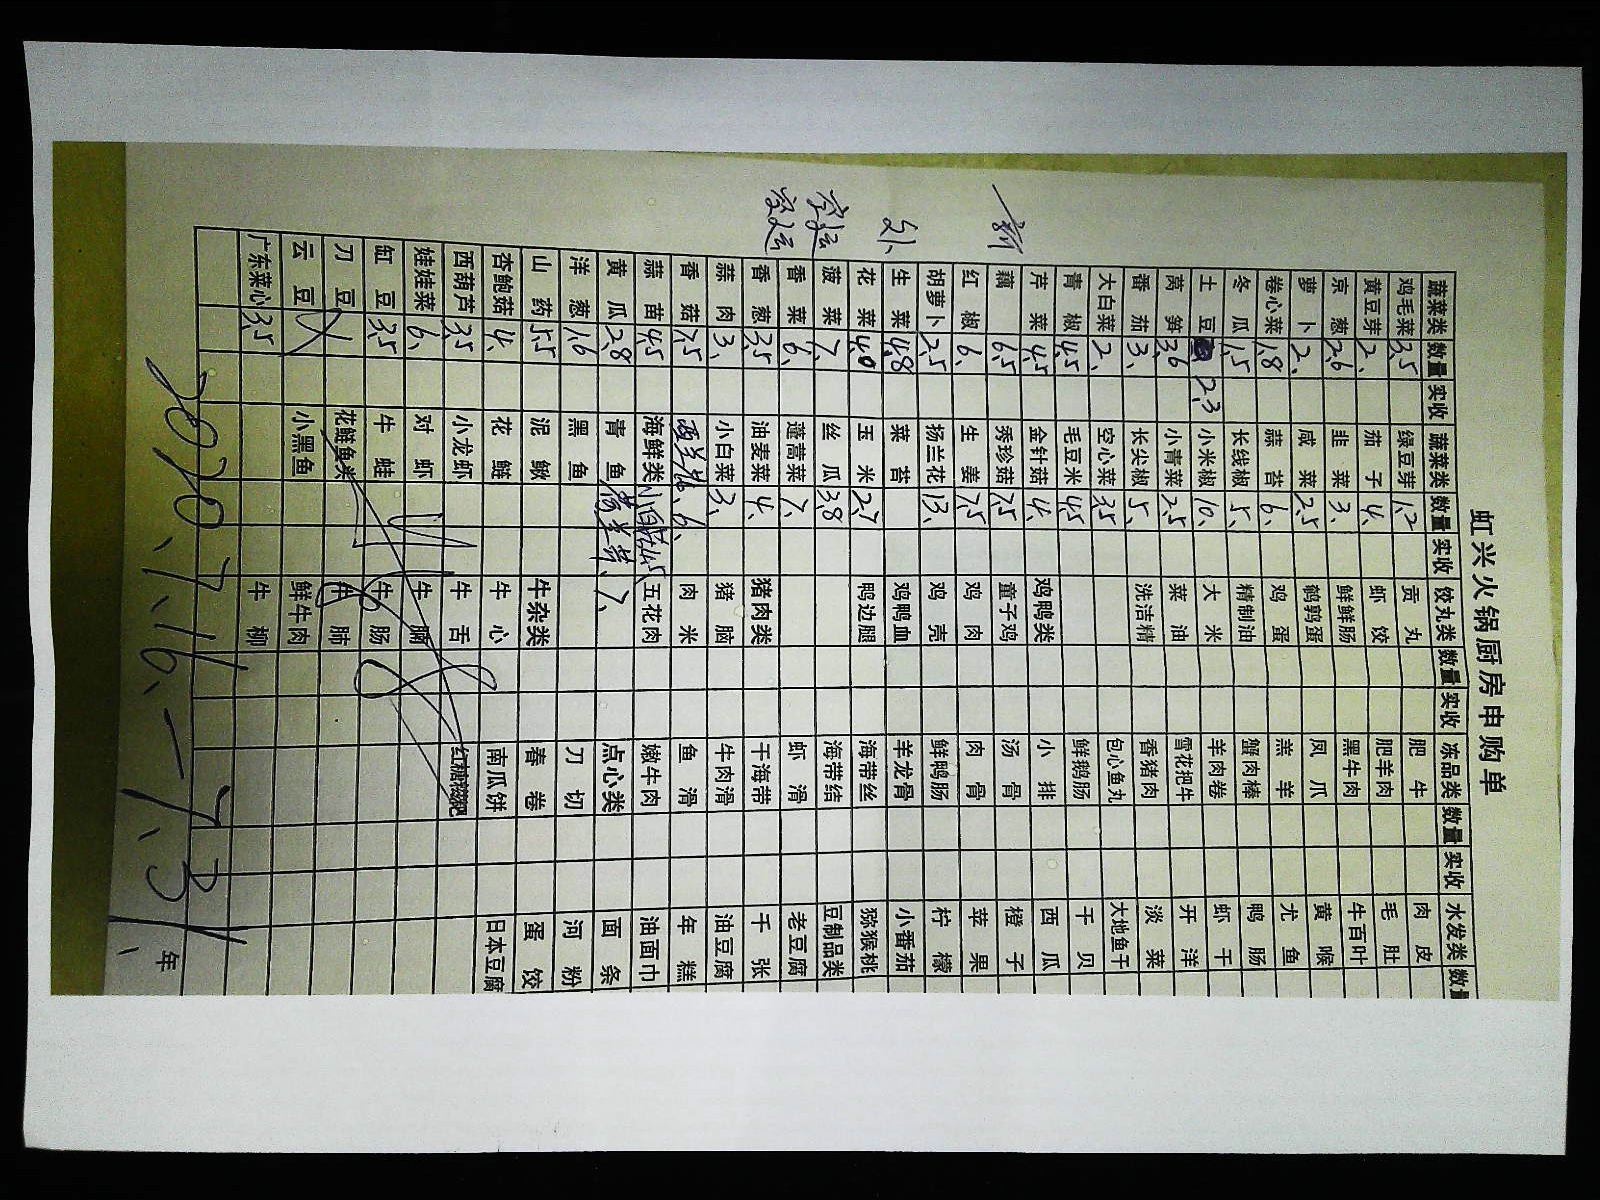 虹兴火锅厨房申购单
蔬菜类 数量 实收 蔬菜类 数量 实收 饺丸类 数量 实收 冻品类 数量 实收 水发类 数量
鸡毛菜 3.5 绿豆芽 1.2 贡丸 肥牛 肉皮
黄豆芽 2、 茄子 4、 虾饺 肥羊肉 毛肚
京葱 2.6 韭菜 3、 鲜鲜肠 黑牛肉 牛百叶
萝卜 2、 咸菜 2.5 鹌鹑蛋 凤爪 黄喉
卷心菜 1.8 蒜苔 6、 鸡蛋 羔羊 尤鱼
冬瓜 1.5 长线椒 5、 精制油 蟹肉棒 鸭肠
土豆 2.3 小米椒 10、 大米 羊肉卷 虾干
莴笋 3.6 小青菜 2.5 菜油 雪花把牛 开洋
番茄 3、 长尖椒 5、 洗洁精 香猪肉 淡菜
大白菜 2、 空心菜 3.5 包心鱼丸 大地鱼干
青椒 4.5 毛豆米 4.5 鲜鹅肠 干贝
芹菜 4.5 金针菇 4、 鸡鸭类 小排 西瓜
藕 6.5 秀珍菇 7.5 童子鸡 汤骨 橙子
红椒 6、 生姜 7.5 鸡肉 肉骨 苹果
胡萝卜 2.5 扬兰花 13、 鸡壳 鲜鸭肠 柠檬
生菜 4.8 菜苔 鸡鸭血 羊龙骨 小番茄
花菜 4.0 玉米 2.7 鸭边腿 海带丝 猕猴桃
菠菜 7、 丝瓜 3.8 海带结 豆制品类
香菜 6、 蓬蒿菜 7、 虾滑 老豆腐
香葱 3.5 油麦菜 4、 猪肉类 干海带 干张
蒜肉 3、 小白菜 3、 猪脑 牛肉滑 油豆腐
香菇 7.5 西兰花 6、 肉米 鱼滑 年糕
蒜苗 4.5 海鲜类 五花肉 嫩牛肉 油面巾
黄瓜 2.8 青鱼 7、 点心类 面条
洋葱 1.6 黑鱼 刀切 河粉
山药 5.5 泥鳅 牛杂类 春卷 蛋饺
杏鲍菇 4、 花鲢 牛心 南瓜饼 日本豆腐
西葫芦 3.5 小龙虾 牛舌 红糖糍粑
娃娃菜 6、 对虾 牛腩
缸豆 3.5 牛蛙 牛肠
刀豆 花鲢鱼类 牛肺
云豆 小黑鱼 鲜牛肉
广东菜心 3.5 牛柳
2020、7、16、—7、31、
年